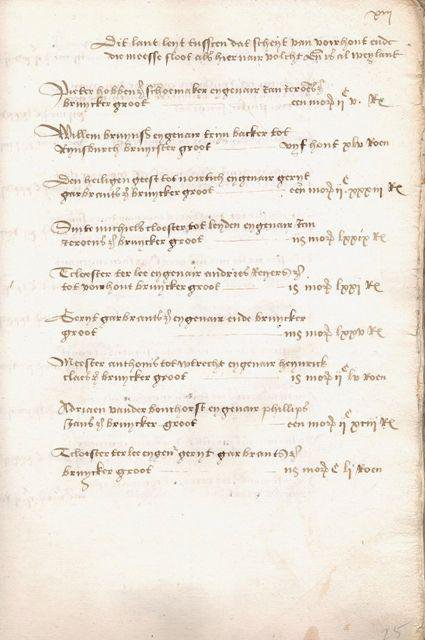 xiij
Dit lant leyt tusschen dat scheyt van voirhout ende
die meesse sloot als hier nair volcht en is al weylant
Pieter hobben schoemaker eygenair Jan
bruycker groot een morg ijc v. R
Willem bruynss eygenair trijn backer tot
Rynsburch bruycster groot vijf hont xlv Roen
Den heiligen geest tot nortich eygenair geryt
garbrants bruycker groot een morg ijc xxxiij R
Sinte michiels cloester tot leyden eygenair Jan
Jeroens bruycker groot morg lxxix R
Tcloester ter lee eygenair andries Reyers
tot voirhout bruycker groot morg lxxi R
Geryt garbrants eygenair ende bruycker
groot morg lxxv R
Meester anthonis tot wtrecht eygenair heynrick
claes bruycker groot morg ijc lv Roen
Adriaen vander bouchorst eygenair phillips
Jans bruycker groot een morg ijc xciij R
Tcloester ter lee eygenr geryt garbrants
bruycker groot morg c li Roen
25